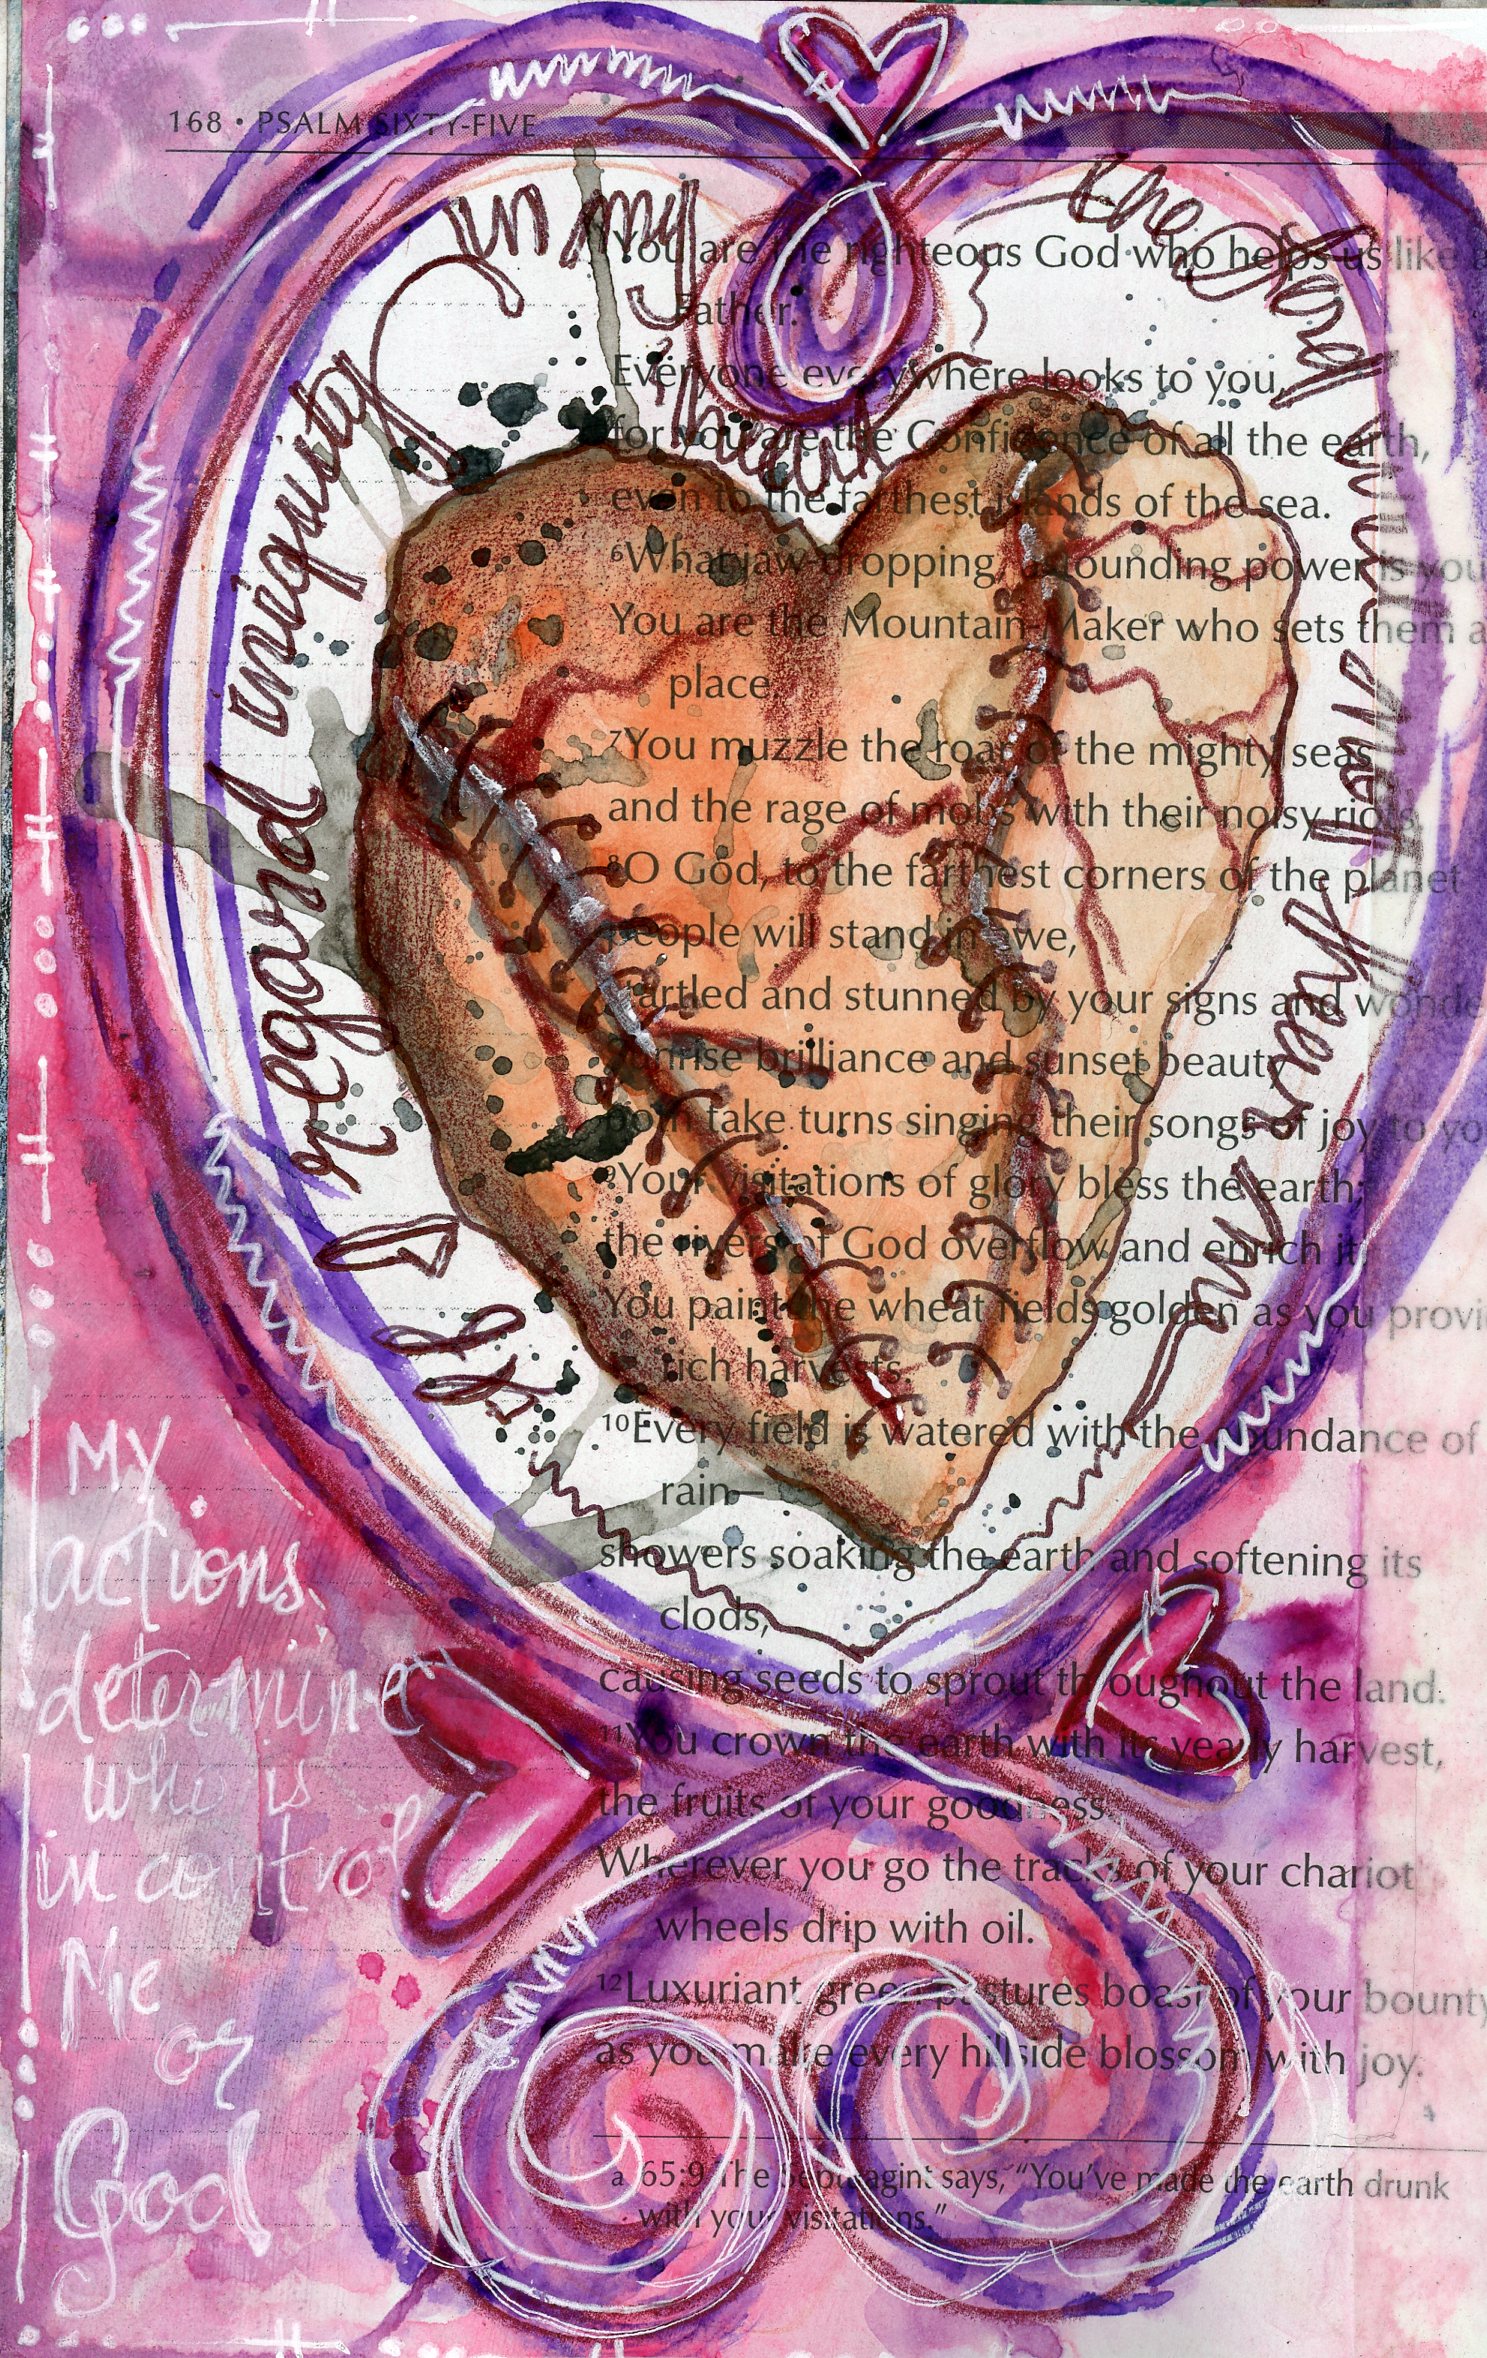 168 • PSALM SIXTY-FIVE
You are the righteous God who helps us like a
Father.
Everyone everywhere looks to you,
for you are the Confidence of all the earth,
even to the farthest islands of the sea.
⁶What jaw-dropping, astounding power is you
You are the Mountain-Maker who sets them a
place.
⁷You muzzle the roar of the mighty seas
and the rage of mobs with their noisy riots.
⁸O God, to the farthest corners of the planet
people will stand in awe,
startled and stunned by your signs and wonde
Sunrise brilliance and sunset beauty
both take turns singing their songs of joy to yo
⁹Your visitations of glory bless the earth;
the rivers of God overflow and enrich it.
You paint the wheat fields golden as you provi
rich harvests.
¹⁰Every field is watered with the abundance of
rain—
showers soaking the earth and softening its
clods,
causing seeds to sprout throughout the land.
¹¹You crown the earth with its yearly harvest,
the fruits of your goodness.
Wherever you go the tracks of your chariot
wheels drip with oil.
¹²Luxuriant green pastures boast of your bounty
as you make every hillside blossom with joy.
a 65:9 The Septuagint says, “You’ve made the earth drunk
with your visitations.”
If I regard iniquity in my heart the Lord will not hear me
My
actions
determine
who is
in control.
Me
or
God